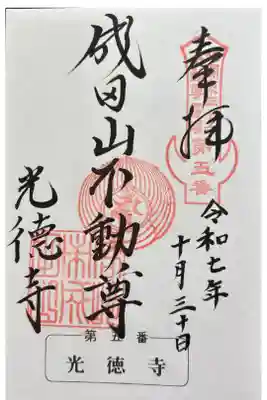 奉拝
第五番
令和七年
十月三十日
成田山不動尊
光德寺
第五番
光徳寺